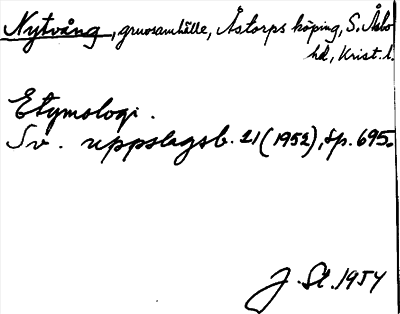 Nytvång, gruvsamhälle, Åstorps köping, S. Åsbo
hd, Krist. l.
Etymologi.
Sv. uppslagsb. 21 (1952), sp. 695.
J. Sl. 1954